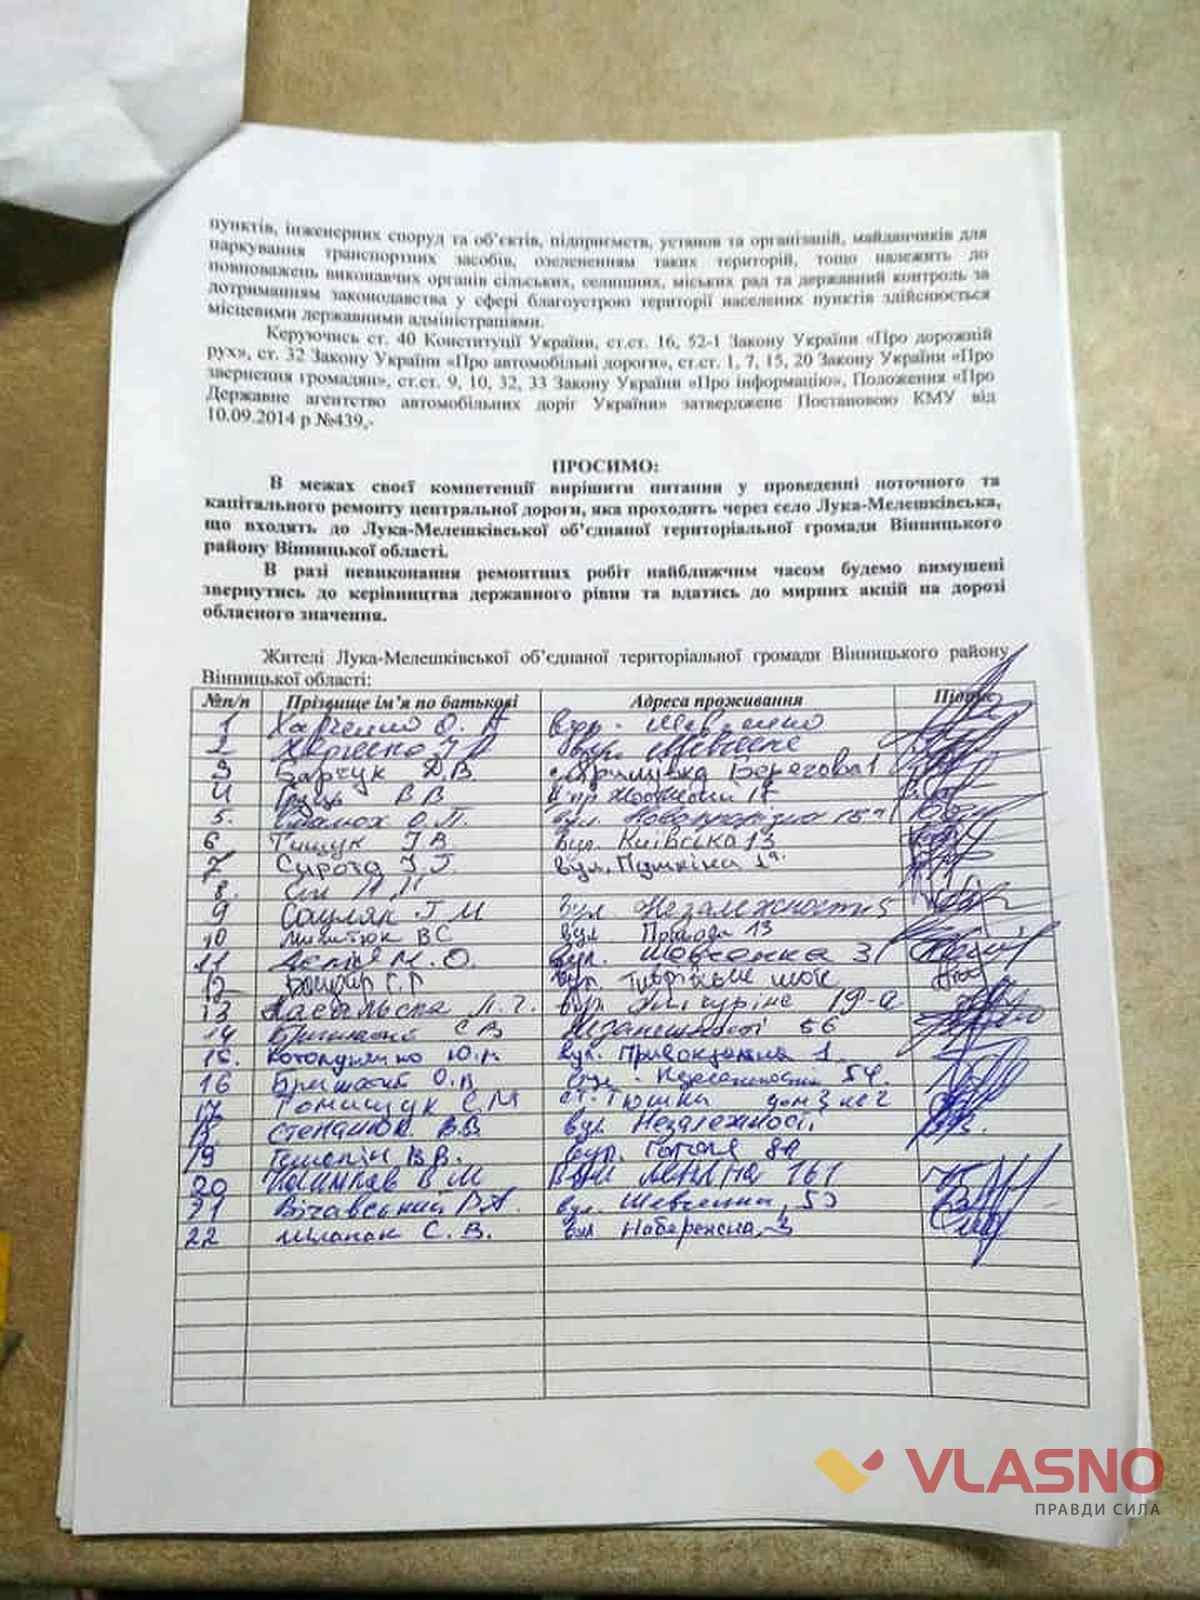 пунктів, інженерних споруд та об'єктів, підприємств, установ та організацій, майданчиків для
паркування транспортних засобів, озелененням таких територій, тощо належить до
повноважень виконавчих органів сільських, селищних, міських рад та державний контроль за
дотриманням законодавства у сфері благоустрою території населених пунктів здійснюється
місцевими державними адміністраціями.
Керуючись ст. 40 Конституції України, ст.ст. 16, 52-1 Закону України «Про дорожній
рух», ст. 32 Закону України «Про автомобільні дороги», ст.ст. 1, 7, 15, 20 Закону України «Про
звернення громадян», ст.ст. 9, 10, 32, 33 Закону України «Про інформацію», Положення «Про
Державне агентство автомобільних доріг України» затверджене Постановою КМУ від
10.09.2014 р №439,-
ПРОСИМО:
В межах своєї компетенції вирішити питання у проведенні поточного та
капітального ремонту центральної дороги, яка проходить через село Лука-Мелешківська,
що входять до Лука-Мелешківської об'єднаної територіальної громади Вінницького
району Вінницької області.
В разі невиконання ремонтних робіт найближчим часом будемо вимушені
звернутись до керівництва державного рівня та вдатись до мирних акцій на дорозі
обласного значення.
Жителі Лука-Мелешківської об'єднаної територіальної громади Вінницького району
Вінницької області:
№п/п Прізвище ім'я по батькові Адреса проживання Підпис
1 Харченко О. А вул. Шевченко
2 вул.
3 Барчук Д.В. Берегова 1
4 В В
5. О.П. вул.
6 Тищук І В вул. Київська 13
7 Сирота І. Г. вул. Пушкіна 1а.
8.
9 Г М вул Незалежності 5
10 Микитюк ВС вул Природи 13
11 М. О. вул. Шовченка 31
12 Бондар С. Г вул.
13 Л. Г. вул. 19-а
14 С В Незалежності 56
15. Ю.М. вул. Привокзальна 1.
16 О. В 54.
17 Томищук С М ст. Тюшки дом 3 кв 2
18 Степанюк В.В. вул Незалежності,
19 В.В. вул. Гоголя 8а
20 В М 161
21 Р.А. вул. Шевченка, 53
22 С. В. вул Набережна, 3
VLASNO
ПРАВДИ СИЛА